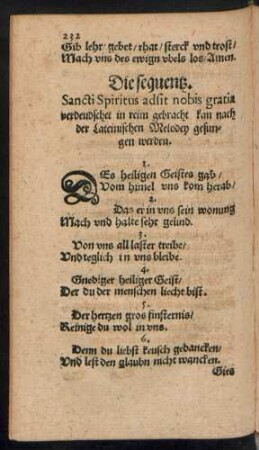 232
Gib lehr/ gebet/ rhat/ sterck vnd trost/
Mach vns des ewign vbels los/ Amen.
Die sequentz.
Sancti Spiritus adsit nobis gratia
verdeudschet in reim gebracht kan nach
der Lateinischen Melodey gesun-
gen werden.
1.
DEs heiligen Geistes gab/
Vom himel vns kom herab/
2.
Das er in vns sein wonung
Mach vnd halte sehr gelind.
3.
Von vns all laster treibe/
Vnd teglich in vns bleibe.
4.
Gnediger heiliger Geist/
Der du der menschen liecht bist.
5.
Der hertzen gros finsternis/
Reinige du wol in vns.
6.
Denn du liebst keusch gedancken/
Vnd lest den glaubn nicht wancken.
Gies